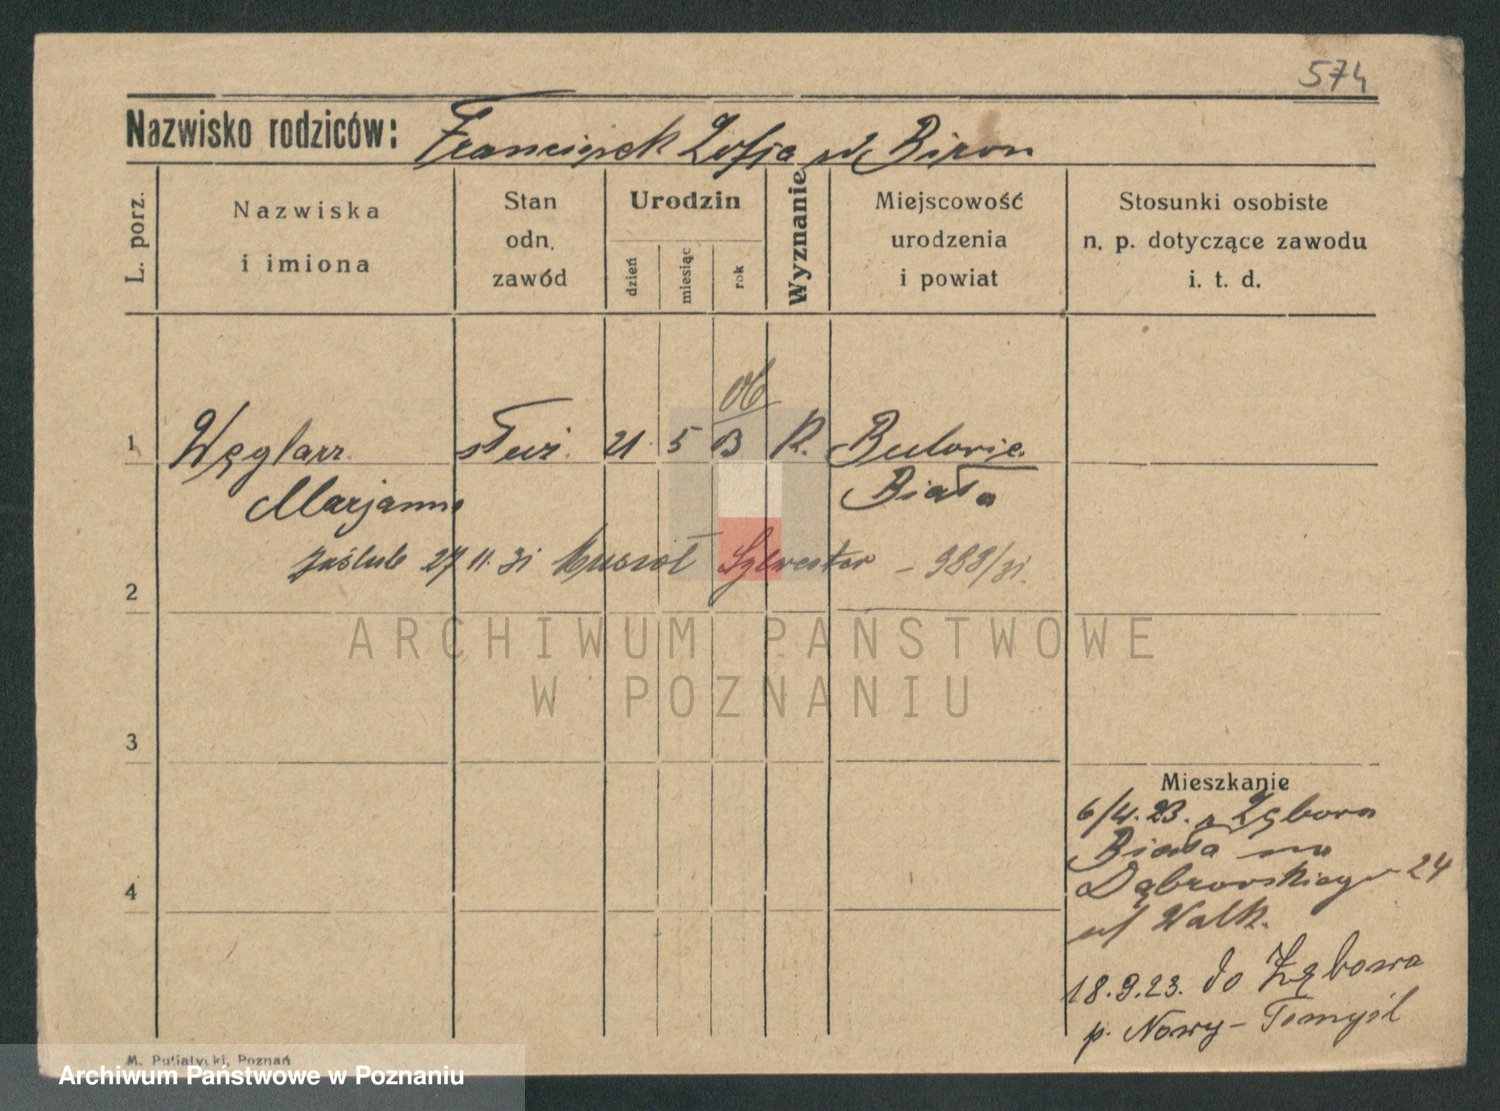 574
Nazwisko rodziców: Franciszek Zofja
L. porz.
Nazwiska i imiona
Stan odn. zawód
Urodzin
dzień
miesiąc
rok
Wyznanie
Miejscowość urodzenia i powiat
Stosunki osobiste n. p. dotyczące zawodu i. t. d.
06
1 Węglarz służ. 21 5 R.
Marjanna Biała
zaślub 27 11. 31 Sylwester - 988/31.
2
ARCHIWUM PAŃSTWOWE
W POZNANIU
3
Mieszkanie
6/4. 23. z
Biała na
4
Dąbrowskiego 24
u/ Walk.
18. 9. 23. do Zębowa
p. Nowy-Tomyśl
M. Putiatycki, Poznań
Archiwum Państwowe w Poznaniu